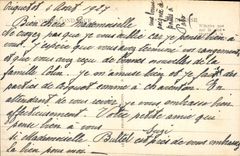 6 Août 1927
Bien chère Mademoiselle
Ne croyez pas que je vous oublie car je pense bien à
vous. J'espère que vous avez terminé vos rangements
et que vous avez reçu de bonnes nouvelles de la
famille Colin. Je m'amuse bien et je fais des
parties de croquet comme à Charenton. En
attendant de vous revoir je vous embrasse bien
affectueusement. Votre petite amie qui
pense bien à vous.
Si Mademoiselle est près de vous embrassez
la bien pour moi